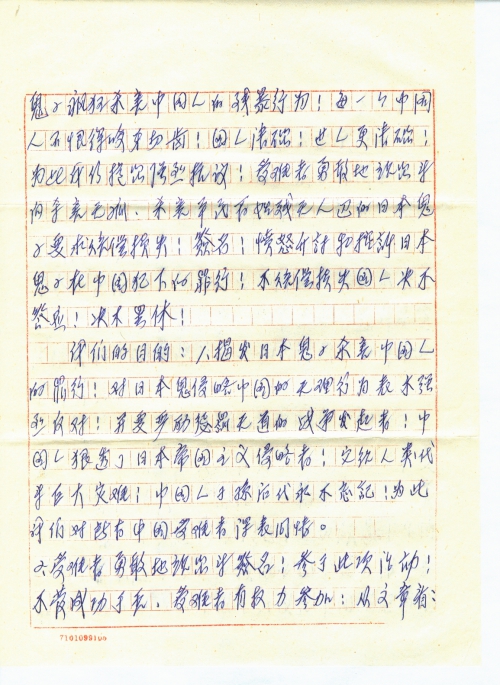 鬼子疯狂杀害中国人的残暴行为！每一个中国
人不恨得咬牙切齿！国人清础！世人更清础！
为此我们提出强烈抗议！受难者勇敢地站出来
向杀害无辜、杀害平民百姓残无人道的日本鬼
子要求赔偿损失！签名！愤怒声讨和控诉日本
鬼子在中国犯下的罪行！不赔偿损失国人决不
答应！决不罢休！
我们的目的：1、揭发日本鬼子杀害中国人
的罪行！对日本鬼侵略中国的无理行为表示强
烈反对！并要罪的战争发起者！中
国人恨透了日本帝国主义侵略者！它给人类代
来巨大灾难！中国人子孙万代永不忘记！为此
我们对所有中国受难者深表同情。
2、受难者勇敢地站出来签名！参于此项活动！
不管成功于否、受难者有权力参加！从文章看：
7101099100